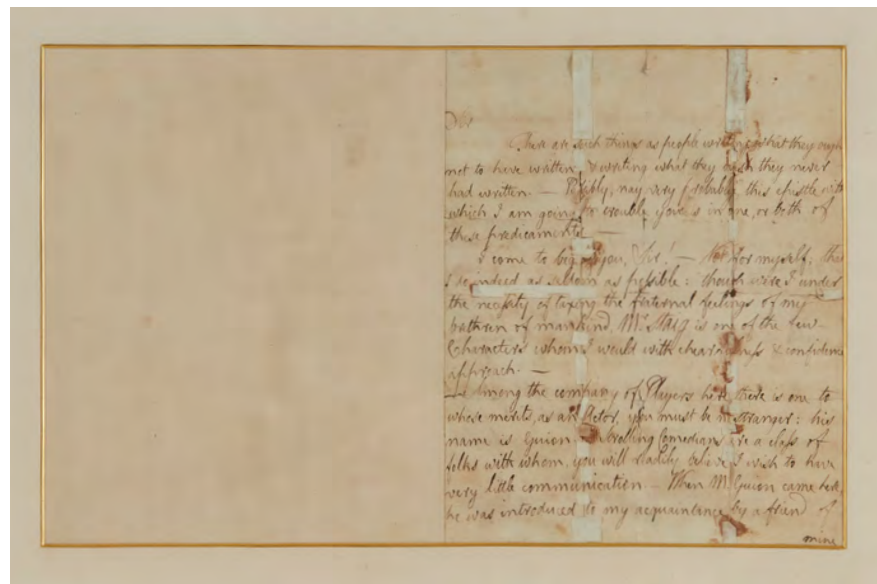 Sir
There are such things as people writing what they ought
not to have written, & writing what they wish they never
had written. — Possibly, nay very probably, this epistle with
which I am going to trouble you is in one, or both of
these predicaments —
I come to beg of you, Sir! — Not for myself; that
I do indeed as seldom as possible: though were I under
the necessity of taxing the fraternal feelings of my
brethren of mankind, Mr Staig is one of the few
Characters whom I would with chearfulness & confidence
approach. —
— Among the company of Players here, there is one to
whose merits, as an Actor, you must be no stranger: his
name is Guion. Strolling Comedians are a class of
folks with whom, you will readily believe I wish to have
very little communication. — When Mr Guion came here,
he was introduced to my acquaintance by a friend of
mine